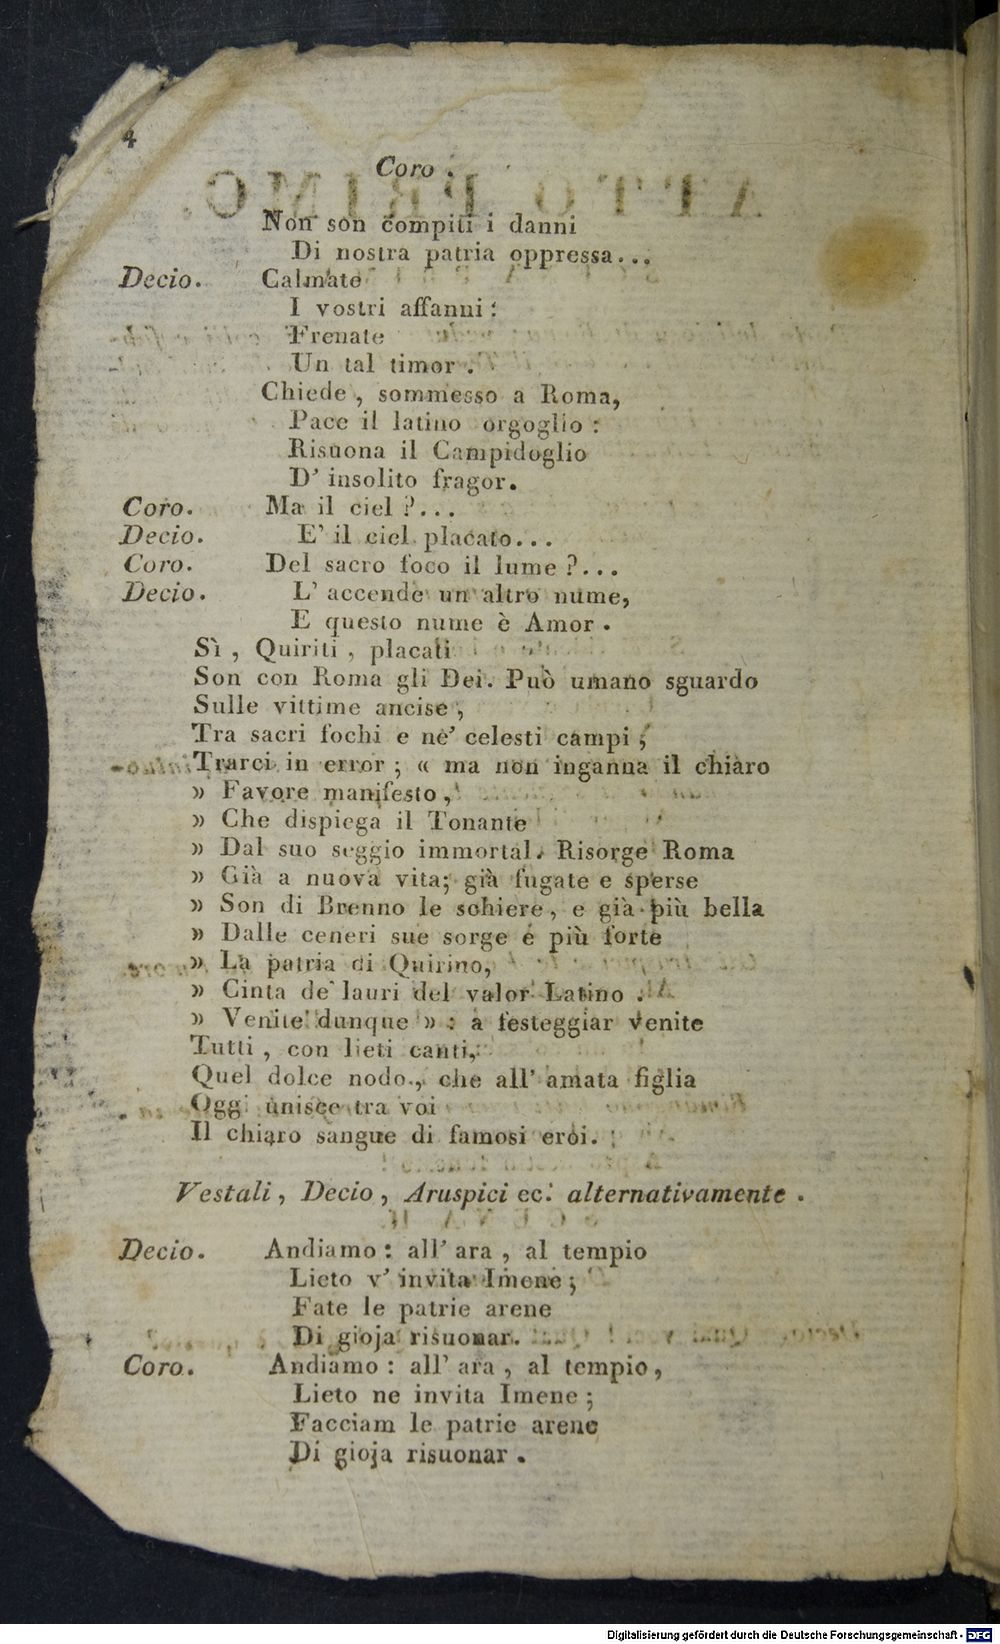 4
Coro.
Non son compiti i danni
Di nostra patria oppressa...
Decio. Calmate
I vostri affanni:
Frenate
Un tal timor.
Chiede, sommesso a Roma,
Pace il latino orgoglio:
Risuona il Campidoglio
D' insolito fragor.
Coro. Ma il ciel?...
Decio. E' il ciel placato...
Coro. Del sacro foco il lume?...
Decio. L' accende un altro nume,
E questo nume è Amor.
Sì, Quiriti, placati
Son con Roma gli Dei. Può umano sguardo
Sulle vittime ancise,
Tra sacri fochi e ne' celesti campi,
Trarci in error; « ma non inganna il chiaro
» Favore manifesto,
» Che dispiega il Tonante
» Dal suo seggio immortal. Risorge Roma
» Già a nuova vita; già fugate e sperse
» Son di Brenno le schiere, e già più bella
» Dalle ceneri sue sorge e più forte
» La patria di Quirino,
» Cinta de' lauri del valor Latino.
» Venite dunque »: a festeggiar venite
Tutti, con lieti canti,
Quel dolce nodo, che all' amata figlia
Oggi unisce tra voi
Il chiaro sangue di famosi eroi.
Vestali, Decio, Aruspici ec. alternativamente.
Decio. Andiamo: all' ara, al tempio
Lieto v' invita Imene;
Fate le patrie arene
Di gioja risuonar.
Coro. Andiamo: all' ara, al tempio,
Lieto ne invita Imene;
Facciam le patrie arene
Di gioja risuonar.
Digitalisierung gefördert durch die Deutsche Forschungsgemeinschaft - DFG